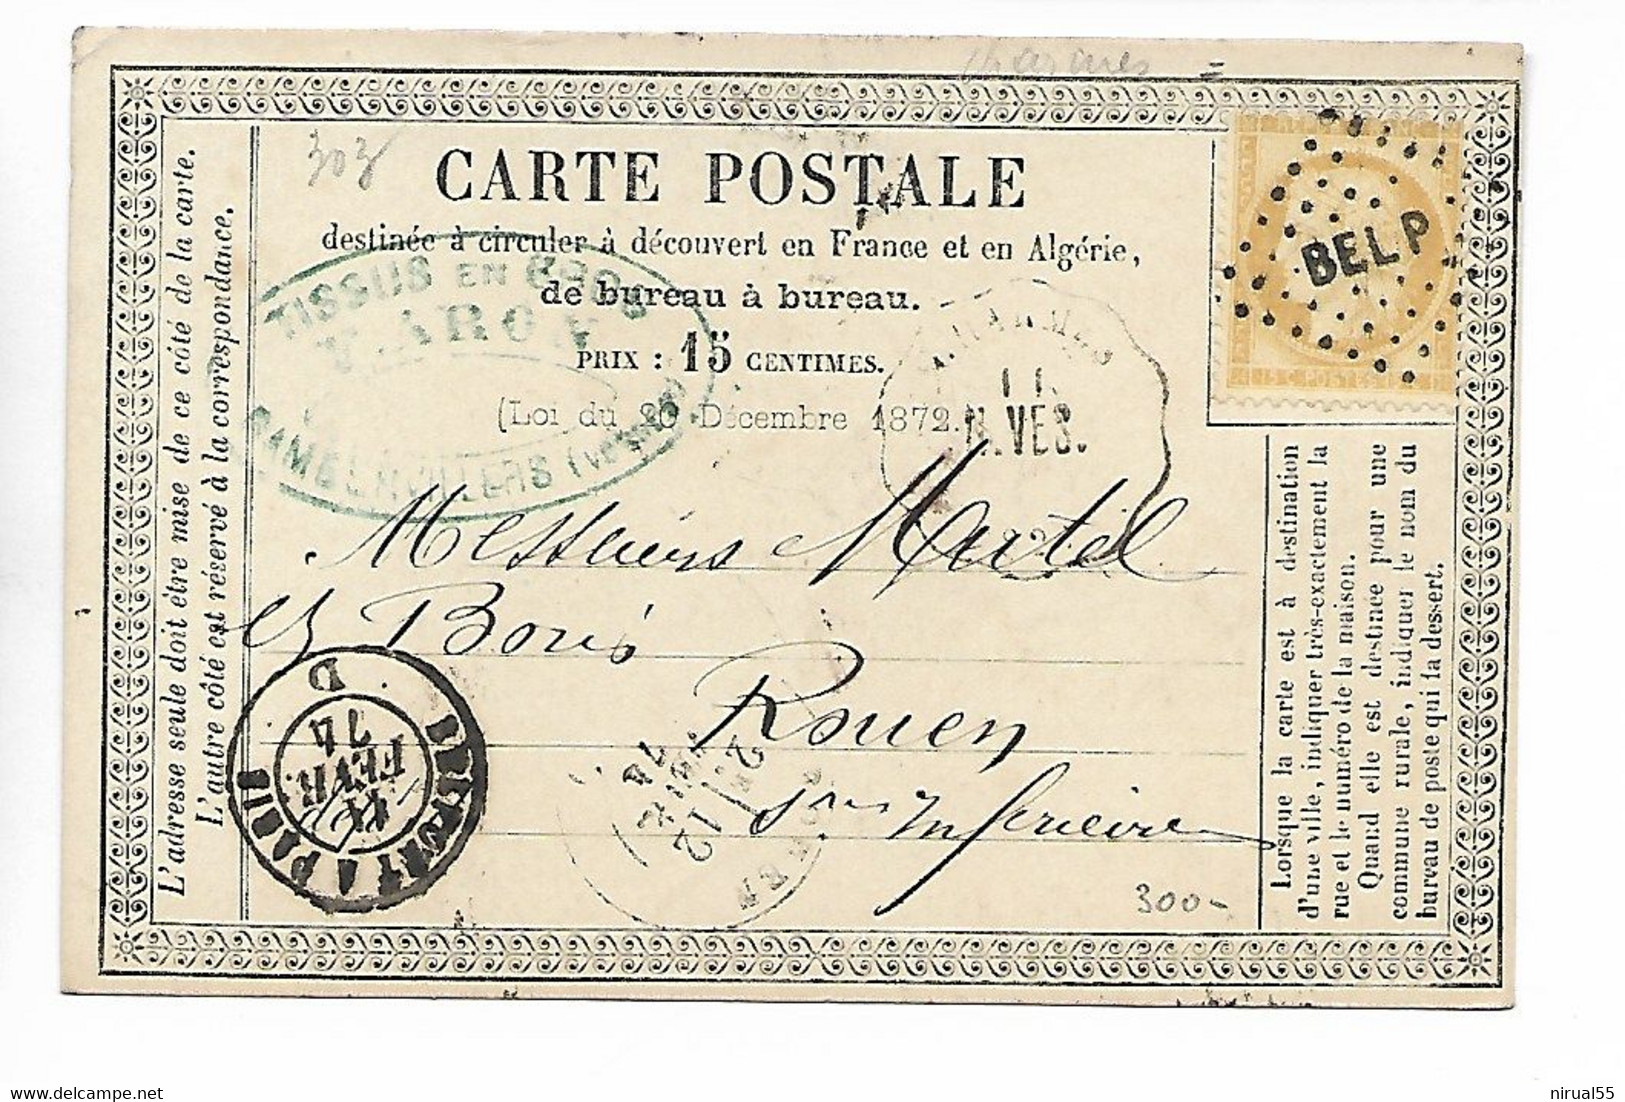 303
CARTE POSTALE
destinée à circuler à découvert en France et en Algérie,
de bureau à bureau.
PRIX : 15 CENTIMES.
(Loi du 20 Décembre 1872.
TISSUS EN GROS
RAMBERVILLERS
BELP
15 C POSTES 15 C
N.VES.
Messieurs Martel
et Boris
Rouen
sne Inférieure
BELFORT A PARIS
D
11
FEVR.
74
ROUEN
12
74
300-
L'adresse seule doit être mise de ce côté de la carte.
L'autre côté est réservé à la correspondance.
Lorsque la carte est à destination
d'une ville, indiquer très-exactement la
rue et le numéro de la maison.
Quand elle est destinée pour une
commune rurale, indiquer le nom du
bureau de poste qui la dessert.
nirual55